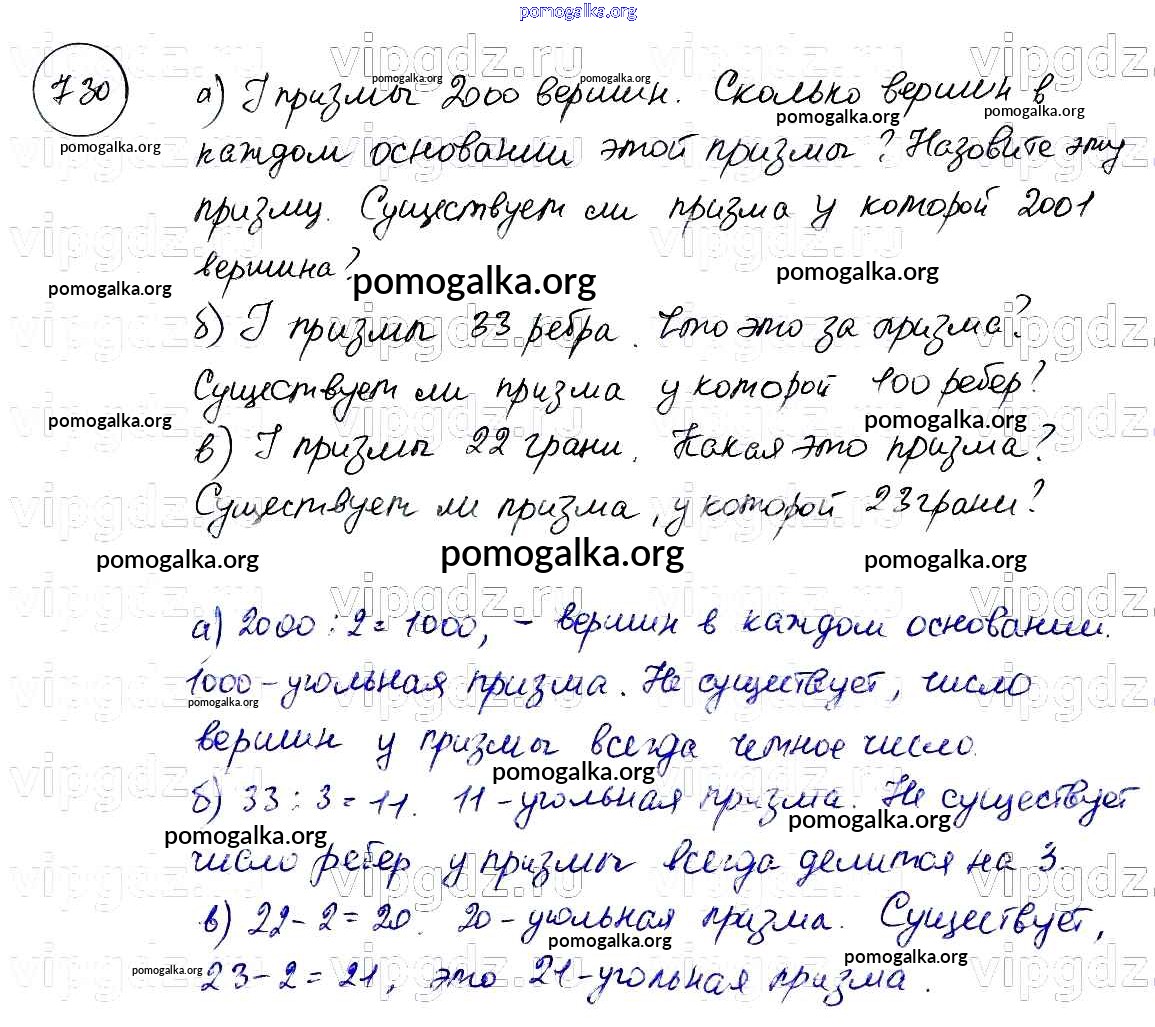 pomogalka.org
730 а) У призмы 2000 вершин. Сколько вершин в
каждом основании этой призмы? Назовите эту
призму. Существует ли призма у которой 2001
вершина?
б) У призмы 33 ребра. Что это за призма?
Существует ли призма у которой 100 ребер?
в) У призмы 22 грани. Какая это призма?
Существует ли призма, у которой 23 грани?
pomogalka.org pomogalka.org pomogalka.org
а) 2000 : 2 = 1000, - вершин в каждом основании.
1000-угольная призма. Не существует, число
вершин у призмы всегда четное число.
б) 33 : 3 = 11. 11-угольная призма. Не существует
число ребер у призмы всегда делится на 3.
в) 22 - 2 = 20. 20-угольная призма. Существует,
23 - 2 = 21, это 21-угольная призма.